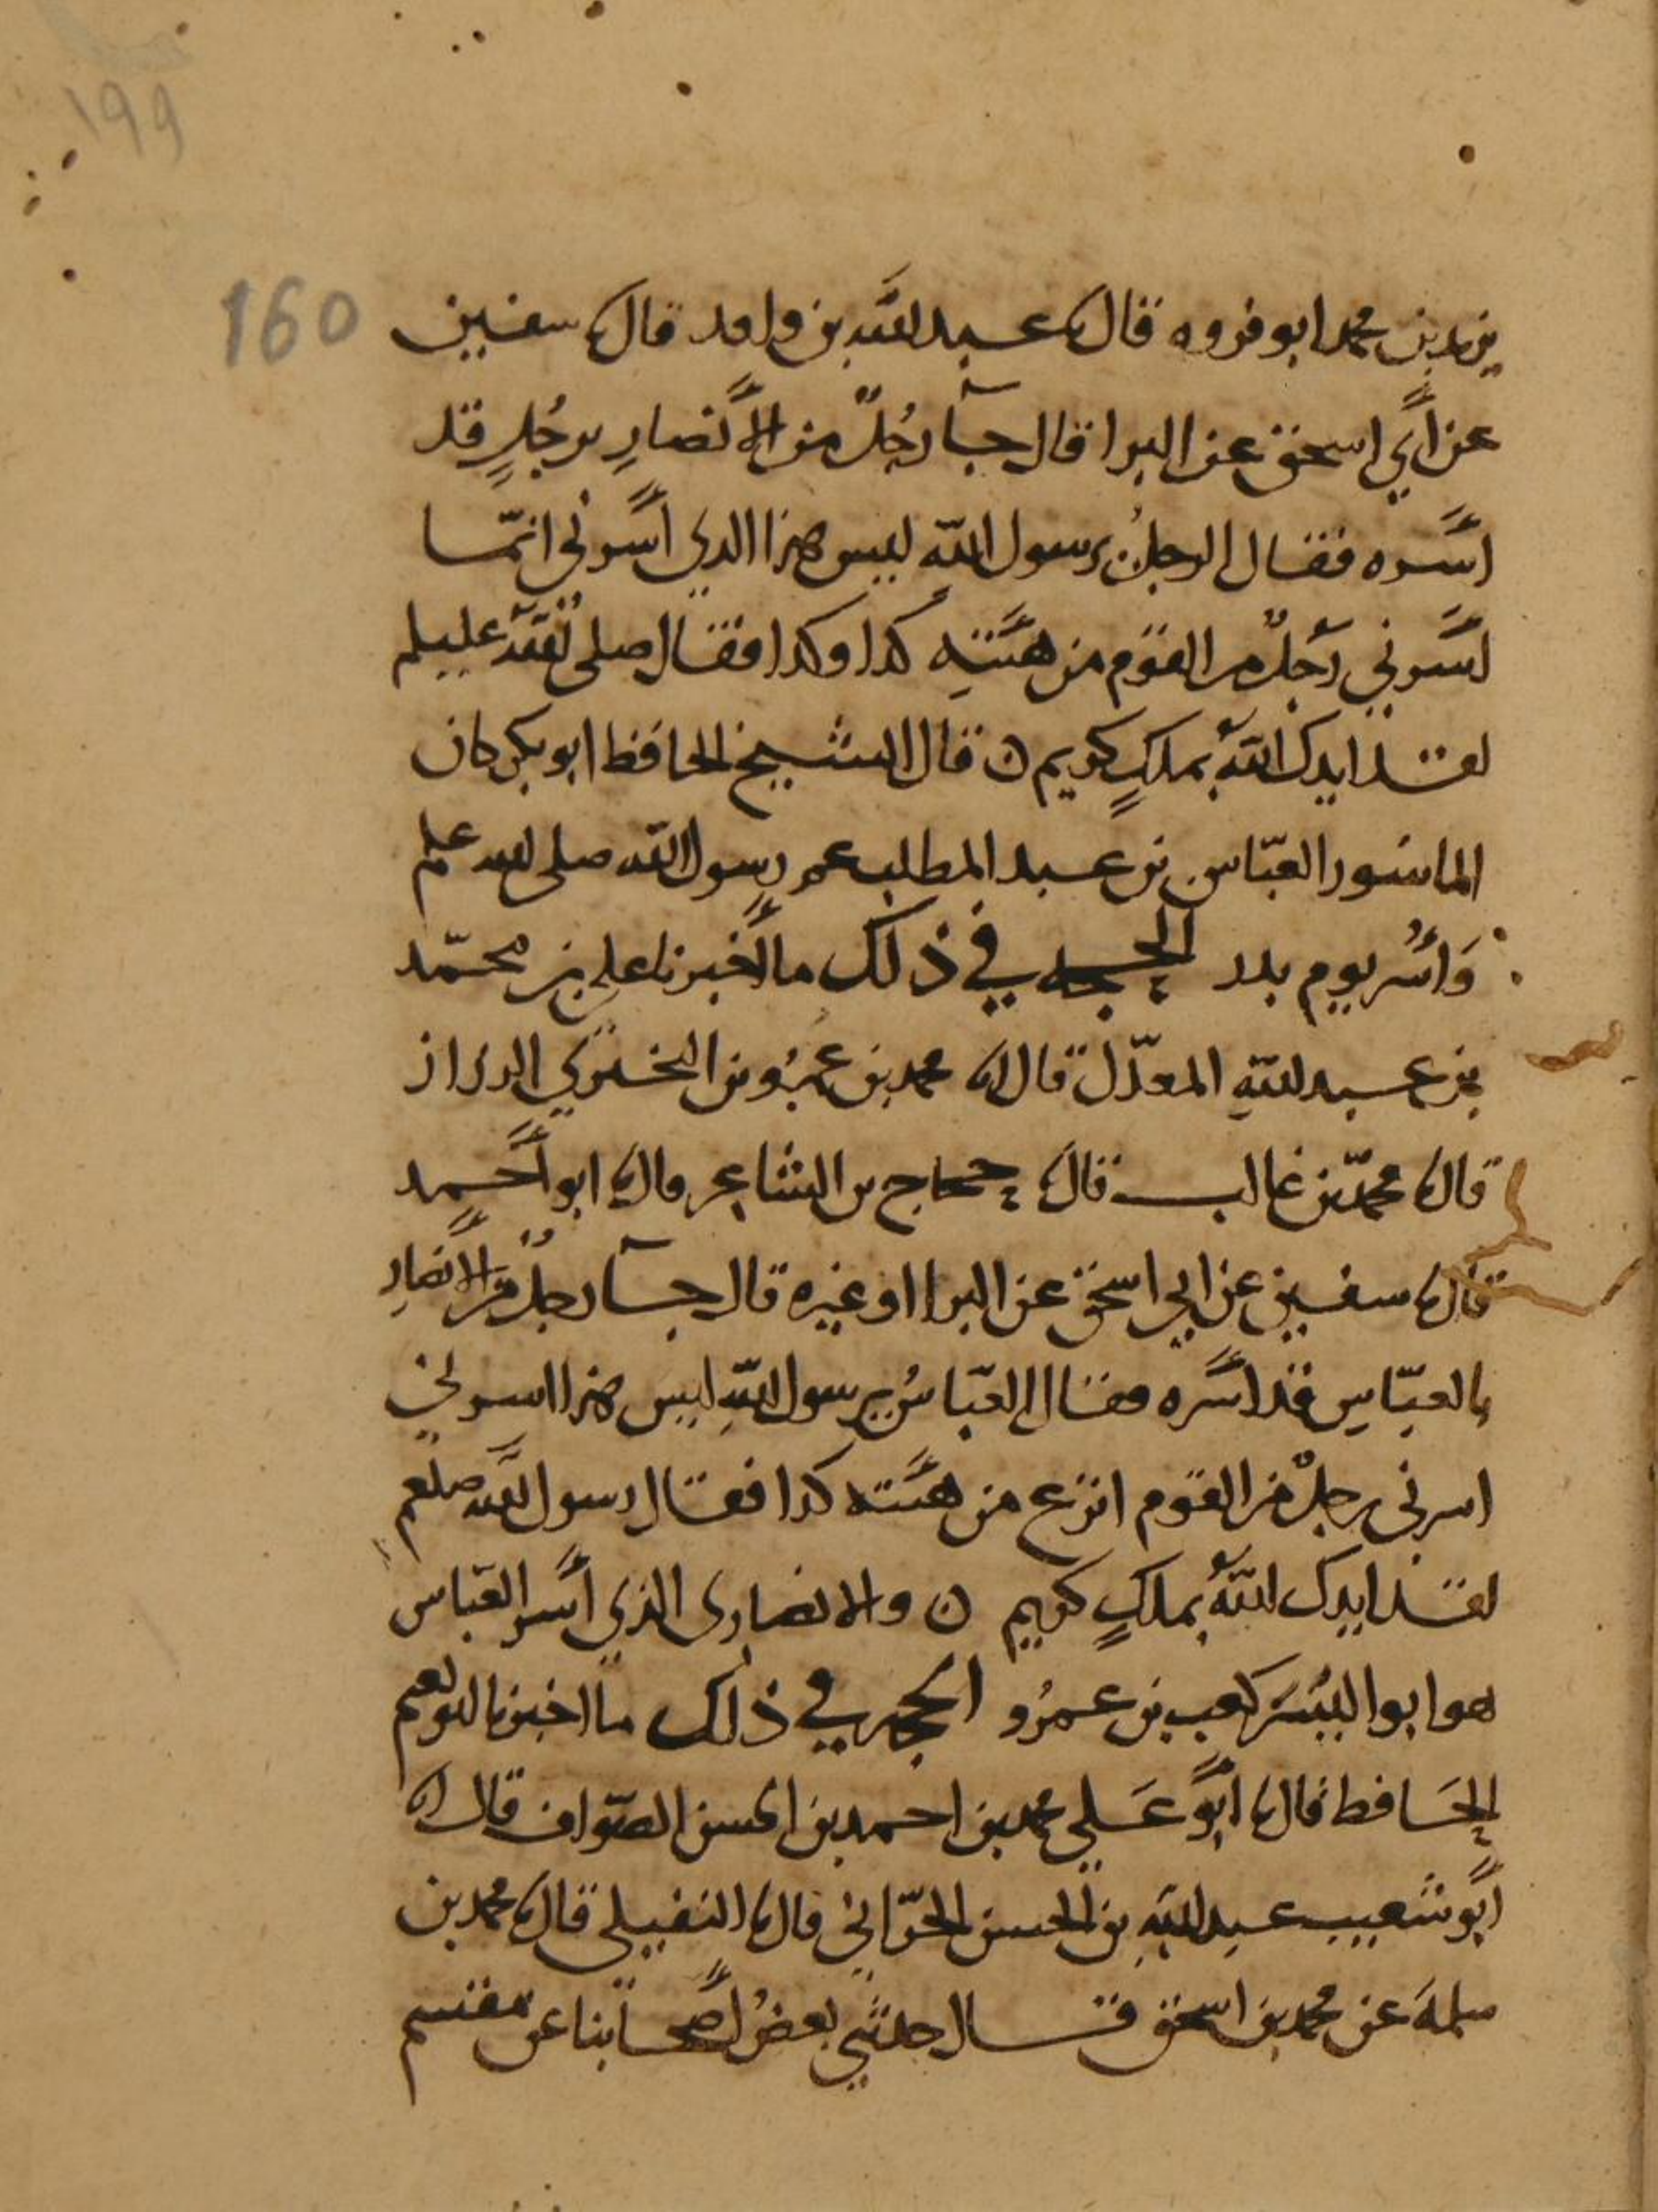 ١٩٩
160
يزيد بن محمد ابو فروه قال نا عبد الله بن واقد قال نا سفين
عن أبي اسحق عن البرا قال جآ رجُلٌ من الأنصارِ برجُلٍ قد
أسره فقال الرجلُ يرسول الله ليس هذا الذي أسرني انمّا
أسرني رجلٌ من القوم من هيئتهِ كذا وكذا فقال صلى الله عليه وسلم
لقد ايدك اللهُ بملكٍ كريم ن قال الشيخ الحافظ ابو بكر كان
الماسور العبّاس بن عبد المطلب عم رسول الله صلى الله عليه وسلم
وَأُسِر يوم بدر الحجه في ذلك ما أخبرنا علي بن محمّد
بن عبد اللهِ المعدّل قال انا محمد بن عمرُو بن البختري الرزاز
قال نا محمّد بن غالب قال نا حجاج بن الشاعر قال نا ابو أحمد
قال نا سفين عن ابي اسحق عن البرا او غيره قال جآ رجلٌ من الأنصارِ
بالعبّاسِ قد أسره فقال العبّاسُ يرسول اللهِ ليس هذا اسرني
اسرني رجلٌ من القوم انزع من هيئته كذا فقال رسول الله صلعم
لقد ايدك اللهُ بملكٍ كريم ن والانصارى الذي أسر العباس
هو ابو اليَسَر كعب بن عمرُو الحجه في ذلك ما اخبرنا ابو نعيم
الحَافظ قال نا أبو عَلي محمد بن احمد بن الحسن الصوّاف قال نا
أبو شعيب عبد اللهِ بن الحسن الحرّاني قال نا النفيلي قال نا محمد بن
سلمهَ عن محمد بن اسحق قال حدثني بعضُ أصحابنا عن مقسم